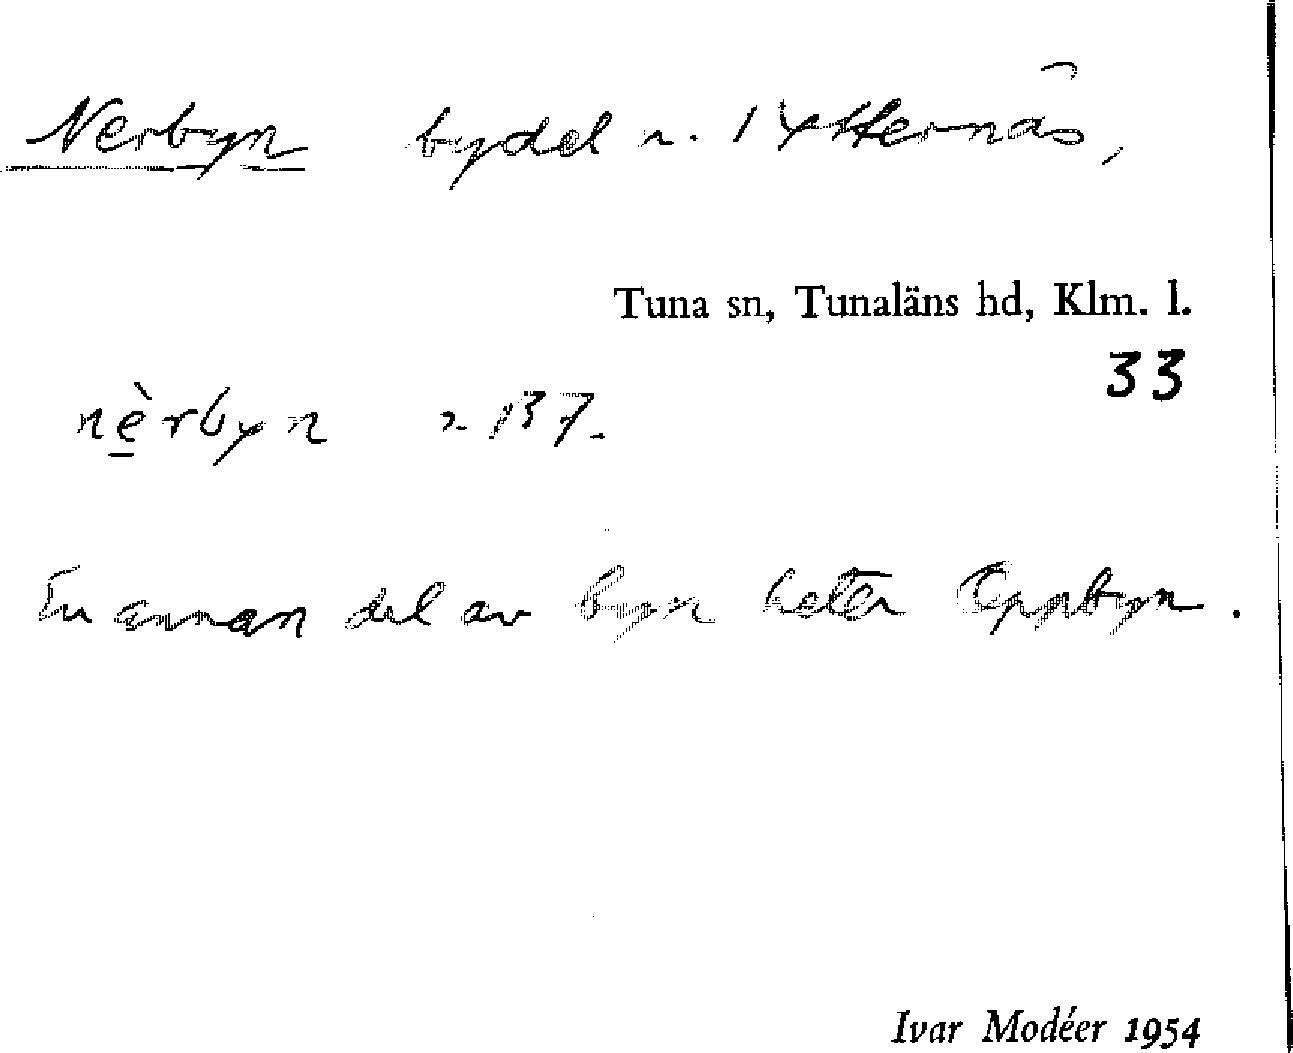 Nerbyn bydel n. 1 Ytternäs,
Tuna sn, Tunaläns hd, Klm. l.
33
nè̱rbyn n. 137.
En annan del av byn heter Oppbyn.
Ivar Modéer 1954